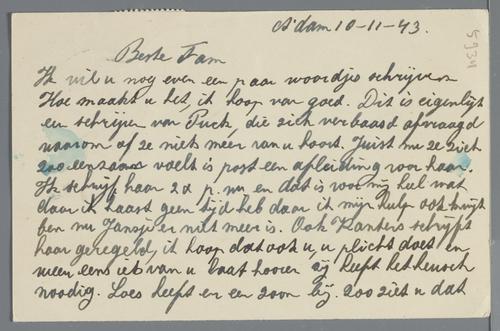 A'dam 10-11-43.
5934
Beste Fam
Ik wil u nog even een paar woordjes schrijven
Hoe maakt u het, ik hoop van goed. Dit is eigenlijk
een schrijven van Puck, die zich verbaasd afvraagd
waarom of ze niet meer van u hoort. Juist nu ze zich
zoo eenzaam voelt is post een afleiding voor haar.
Ik schrijf haar 2x p. w en dat is voor mij heel wat
daar ik haast geen tijd heb daar ik mijn hulp ook kwijt
ben nu Jansje er niet meer is. Ook Kanters schrijft
haar geregeld, ik hoop dat ook u, u plicht doet en
weer eens iets van u laat hooren zij heeft het heusch
noodig. Loes heeft er een zoon bij. zoo ziet u dat